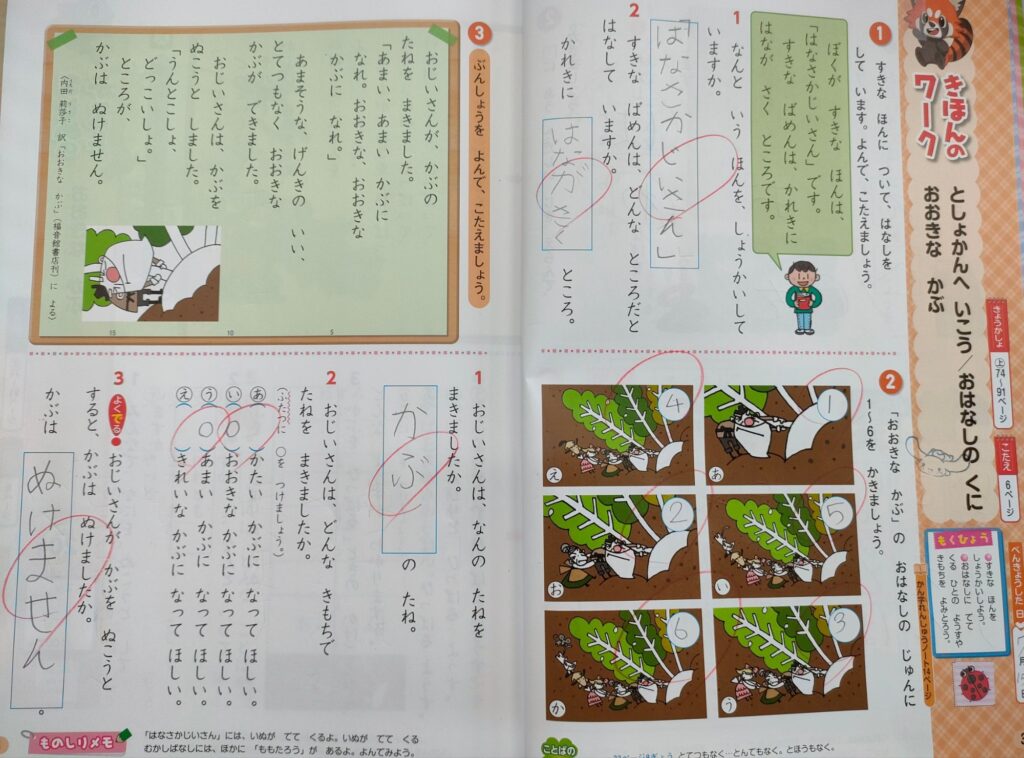 きほんの
ワーク
としょかんへ いこう/おはなしの くに
おおきな かぶ
きょうかしょ
上74〜91ページ
こたえ
6ページ
べんきょうした日
もくひょう
すきな ほんを
しょうかいしよう。
おはなしに でて
くる ひとの ようすや
きもちを よみとろう。
かん字れんしゅうノート14ページ
1 すきな ほんに ついて、はなしを
して います。よんで、こたえましょう。
ぼくが すきな ほんは、
「はなさかじいさん」です。
すきな ばめんは、かれきに
はなが さく ところです。
1 なんと いう ほんを、しょうかいして
いますか。
「はなさかじいさん」
2 すきな ばめんは、どんな ところだと
はなして いますか。
かれきに はながさく ところ。
2 「おおきな かぶ」の おはなしの じゅんに
1〜6を かきましょう。
1
あ
5
い
3
う
4
え
2
お
6
か
ことばの
とてつもなく…とんでもなく。とほうもなく。
3 ぶんしょうを よんで、こたえましょう。
おじいさんが、かぶの
たねを まきました。
「あまい、あまい かぶに
なれ。おおきな、おおきな
かぶに なれ。」
あまそうな、げんきの いい、
とてつもなく おおきな
かぶが できました。
おじいさんは、かぶを
ぬこうと しました。
「うんとこしょ、
どっこいしょ。」
ところが、
かぶは ぬけません。
〈内田 莉莎子 訳「おおきな かぶ」(福音館書店刊)に よる〉
5
10
15
1 おじいさんは、なんの たねを
まきましたか。
かぶ の たね。
2 おじいさんは、どんな きもちで
たねを まきましたか。
(ふたつに ○を つけましょう。)
あ( )かたい かぶに なって ほしい。
い(○)おおきな かぶに なって ほしい。
う(○)あまい かぶに なって ほしい。
え( )きれいな かぶに なって ほしい。
3 よくでる おじいさんが かぶを ぬこうと
すると、かぶは ぬけましたか。
かぶは ぬけません。
ものしりメモ
「はなさかじいさん」には、いぬが でて くるよ。いぬが でて くる
むかしばなしには、ほかに 「ももたろう」が あるよ。よんでみよう。